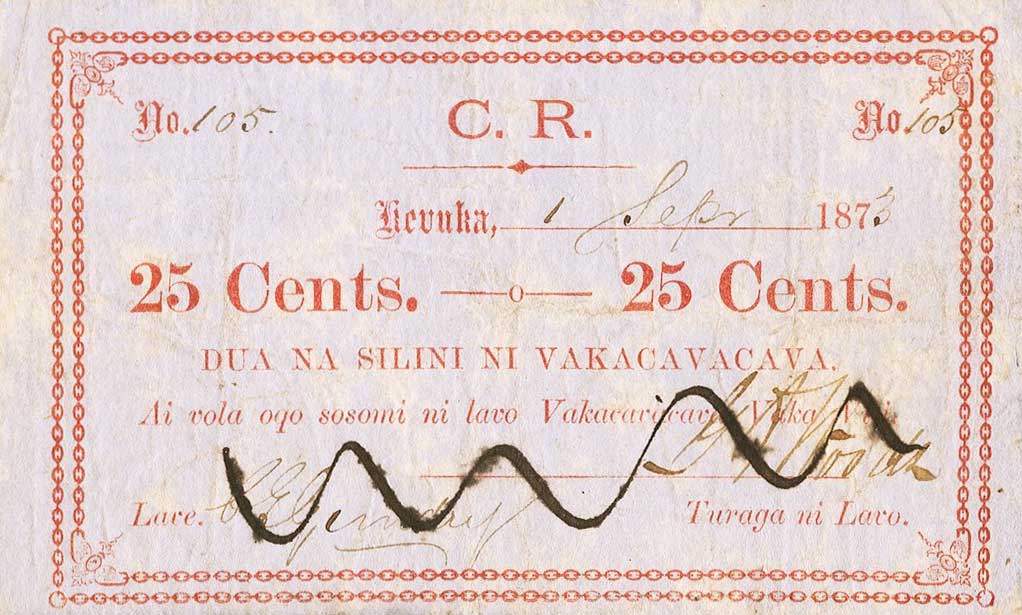 No. 105. C. R. No 105
Levuka, 1 Sepr 1873
25 Cents. 25 Cents.
DUA NA SILINI NI VAKACAVACAVA.
Ai vola oqo sosomi ni lavo Vakacavacava Vaka
Lave. Turaga ni Lavo.